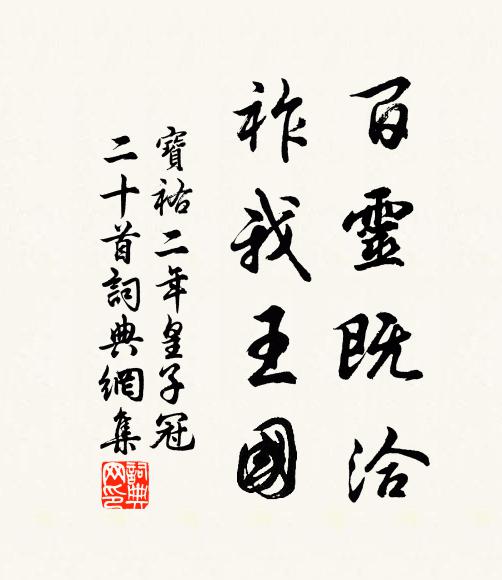 百靈既洽
祚我王國
寶祐二年皇子冠
二十首詞典網集
詞典网印